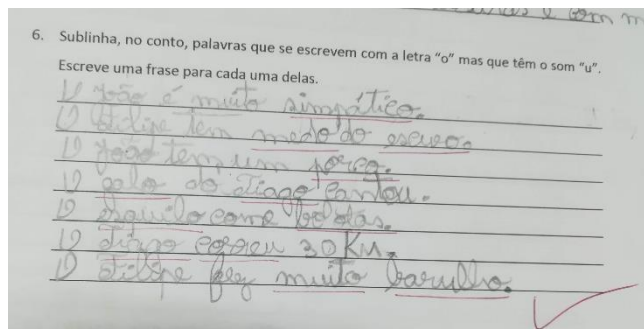 com m
6. Sublinha, no conto, palavras que se escrevem com a letra “o” mas que têm o som “u”.
Escreve uma frase para cada uma delas.
O João é muito simpático.
O Filipe tem medo do escuro.
O João tem um porco.
O galo do Tiago cantou.
O esquilo come bolotas.
O Tiago correu 30 Km.
O Filipe fez muito barulho.